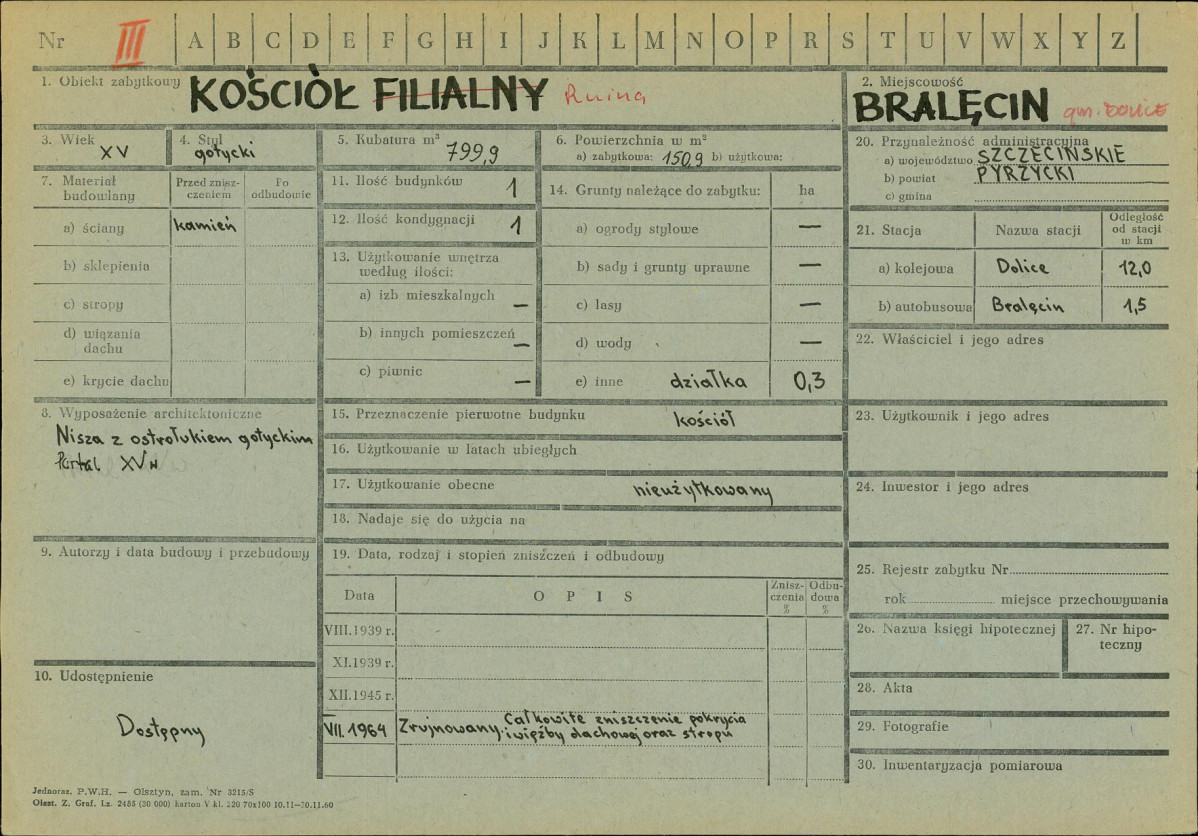 Nr III A B C D E F G H I J K L M N O P R S T U V W X Y Z
1. Obiekt zabytkowy KOŚCIÓŁ FILIALNY Ruina
2. Miejscowość
BRALĘCIN gm. DOLICE
3. Wiek
XV
4. Styl
gotycki
5. Kubatura m³
799,9
6. Powierzchnia w m²
a) zabytkowa: 150,9 b) użytkowa:
7. Materiał
budowlany
Przed znisz-
czeniem
Po
odbudowie
a) ściany kamień
b) sklepienia
c) stropy
d) wiązania
dachu
e) krycie dachu
8. Wyposażenie architektoniczne
Nisza z ostrołukiem gotyckim
Portal XV w
9. Autorzy i data budowy i przebudowy
10. Udostępnienie
Dostępny
11. Ilość budynków 1
12. Ilość kondygnacji 1
13. Użytkowanie wnętrza
według ilości:
a) izb mieszkalnych —
b) innych pomieszczeń —
c) piwnic —
14. Grunty należące do zabytku: ha
a) ogrody stylowe —
b) sady i grunty uprawne —
c) lasy —
d) wody —
e) inne działka 0,3
15. Przeznaczenie pierwotne budynku kościół
16. Użytkowanie w latach ubiegłych
17. Użytkowanie obecne nieużytkowany
18. Nadaje się do użycia na
19. Data, rodzaj i stopień zniszczeń i odbudowy
Data
OPIS
Znisz-
czenia
%
Odbu-
dowa
%
VIII.1939 r.
XI.1939 r.
XII.1945 r.
VII.1964 Zrujnowany. Całkowite zniszczenie pokrycia
i więźby dachowej oraz stropu
20. Przynależność administracyjna
a) województwo SZCZECIŃSKIE
b) powiat PYRZYCKI
c) gmina
21. Stacja
Nazwa stacji
Odległość
od stacji
w km
a) kolejowa Dolice 12,0
b) autobusowa Bralęcin 1,5
22. Właściciel i jego adres
23. Użytkownik i jego adres
24. Inwestor i jego adres
25. Rejestr zabytku Nr
rok miejsce przechowywania
26. Nazwa księgi hipotecznej
27. Nr hipo-
teczny
28. Akta
29. Fotografie
30. Inwentaryzacja pomiarowa
Jednoraz. P.W.H. — Olsztyn, zam. Nr 3215/S
Olszt. Z. Graf. Lz. 2485 (30 000) karton V kl. 220 70x100 10.11—30.11.60